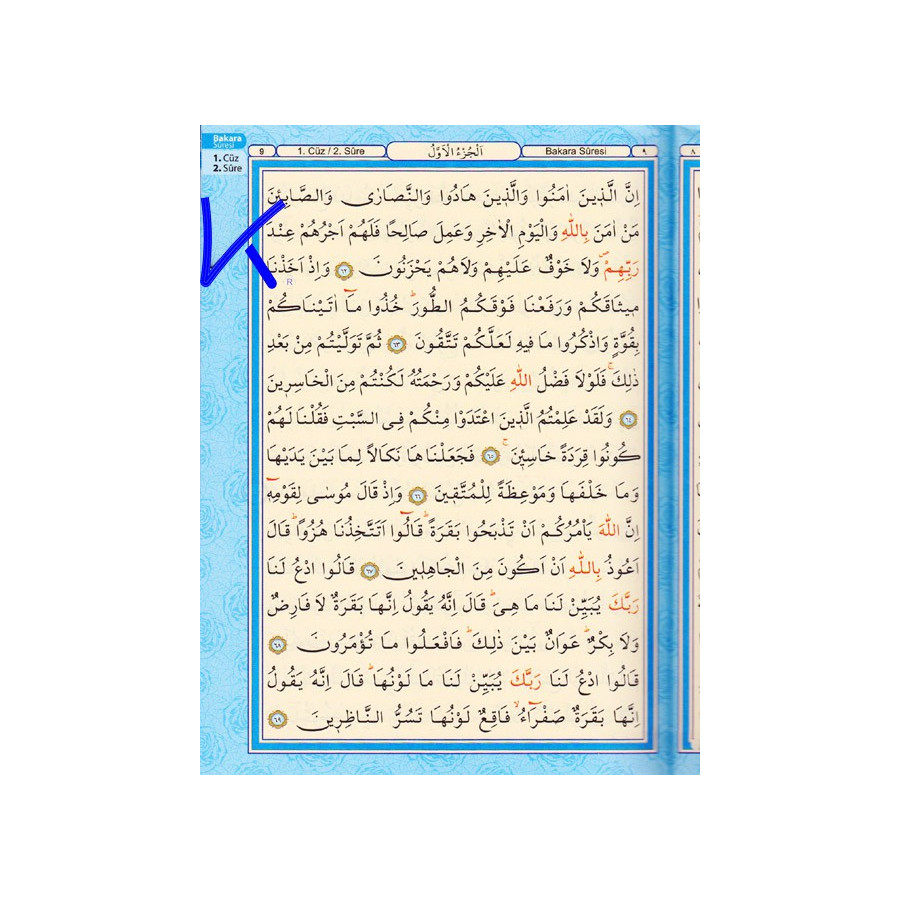 Bakara
Sûresi
1. Cüz
2. Sûre
9
1. Cüz / 2. Sûre
اَلْجُزْءُ الْاَوَّلُ
Bakara Sûresi
٩
٨
K
R
اِنَّ الَّذ۪ينَ اٰمَنُوا وَالَّذ۪ينَ هَادُوا وَالنَّصَارٰى وَالصَّابِـ۪ٔينَ
مَنْ اٰمَنَ بِاللّٰهِ وَالْيَوْمِ الْاٰخِرِ وَعَمِلَ صَالِحًا فَلَهُمْ اَجْرُهُمْ عِنْدَ
رَبِّهِمْۖ وَلَا خَوْفٌ عَلَيْهِمْ وَلَاهُمْ يَحْزَنُونَ ﴿٦٢﴾ وَاِذْ اَخَذْنَا
م۪يثَاقَكُمْ وَرَفَعْنَا فَوْقَكُمُ الطُّورَۜ خُذُوا مَٓا اٰتَيْنَاكُمْ
بِقُوَّةٍ وَاذْكُرُوا مَا ف۪يهِ لَعَلَّكُمْ تَتَّقُونَ ﴿٦٣﴾ ثُمَّ تَوَلَّيْتُمْ مِنْ بَعْدِ
ذٰلِكَۚ فَلَوْلَا فَضْلُ اللّٰهِ عَلَيْكُمْ وَرَحْمَتُهُ لَكُنْتُمْ مِنَ الْخَاسِر۪ينَ
﴿٦٤﴾ وَلَقَدْ عَلِمْتُمُ الَّذ۪ينَ اعْتَدَوْا مِنْكُمْ فِي السَّبْتِ فَقُلْنَا لَهُمْ
كُونُوا قِرَدَةً خَاسِـ۪ٔينَۚ ﴿٦٥﴾ فَجَعَلْنَاهَا نَكَالًا لِمَا بَيْنَ يَدَيْهَا
وَمَا خَلْفَهَا وَمَوْعِظَةً لِلْمُتَّق۪ينَ ﴿٦٦﴾ وَاِذْ قَالَ مُوسٰى لِقَوْمِه۪ٓ
اِنَّ اللّٰهَ يَأْمُرُكُمْ اَنْ تَذْبَحُوا بَقَرَةًۜ قَالُٓوا اَتَتَّخِذُنَا هُزُوًاۜ قَالَ
اَعُوذُ بِاللّٰهِ اَنْ اَكُونَ مِنَ الْجَاهِل۪ينَ ﴿٦٧﴾ قَالُوا ادْعُ لَنَا
رَبَّكَ يُبَيِّنْ لَنَا مَا هِيَۜ قَالَ اِنَّهُ يَقُولُ اِنَّهَا بَقَرَةٌ لَا فَارِضٌ
وَلَا بِكْرٌۜ عَوَانٌ بَيْنَ ذٰلِكَۜ فَافْعَلُوا مَا تُؤْمَرُونَ ﴿٦٨﴾
قَالُوا ادْعُ لَنَا رَبَّكَ يُبَيِّنْ لَنَا مَا لَوْنُهَاۜ قَالَ اِنَّهُ يَقُولُ
اِنَّهَا بَقَرَةٌ صَفْرَٓاءُۙ فَاقِعٌ لَوْنُهَا تَسُرُّ النَّاظِر۪ينَ ﴿٦٩﴾